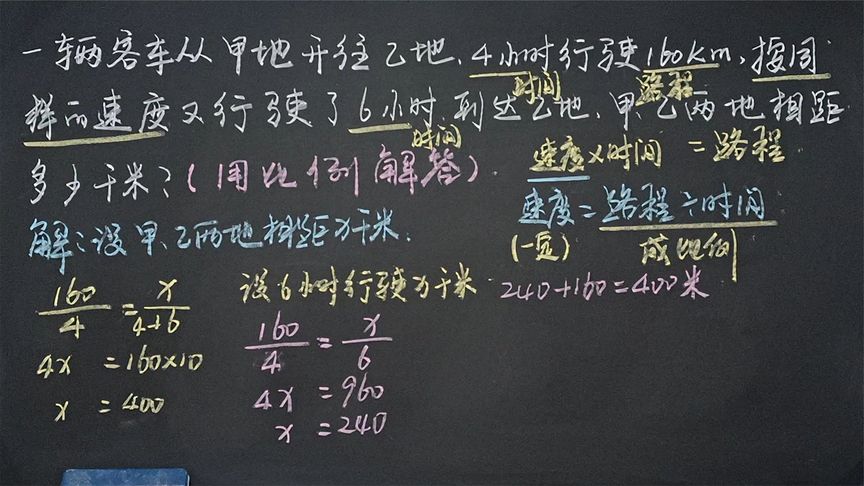 一辆客车从甲地开往乙地,4小时行驶160km,按同
时间 路程
样的速度又行驶了6小时,到达乙地,甲、乙两地相距
时间
多少千米?(用比例解答)
速度×时间=路程
解:设甲、乙两地相距x千米.
速度=路程÷时间
(一定) 成比例
160/4=x/4+6
4x=160×10
x=400
设6小时行驶x千米.
160/4=x/6
4x=960
x=240
240+160=400米